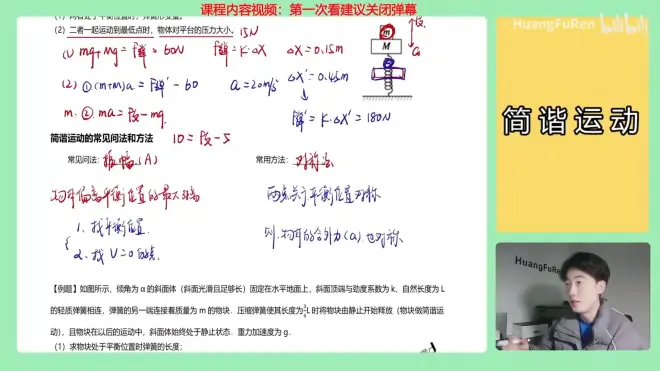 课程内容视频：第一次看建议关闭弹幕
HuangFuRen bilibili
(2) 二者一起运动到最低点时，物体对平台的压力大小。 15N
(1) mg+Mg=F弹=60N F弹=k·ΔX ΔX=0.15m
(2) ①(M+m)a=F弹'-60 a=20m/s² ΔX'=0.45m
m. ② ma=F支-mg. F弹'=k·ΔX'=180N
m
M
简谐运动的常见问法和方法 10=F支-5
常见问法：振幅(A) 常用方法：对称法
物体偏离平衡位置的最大距离 两点关于平衡位置对称
1. 找平衡位置 则：物体的合外力(a)也对称
2. 找V=0的点
简谐运动
HuangFuRen
【例题】如图所示，倾角为 α 的斜面体（斜面光滑且足够长）固定在水平地面上，斜面顶端与劲度系数为 k、自然长度为 L
的轻质弹簧相连，弹簧的另一端连接着质量为 m 的物块．压缩弹簧使其长度为 3/4 L 时将物块由静止开始释放（物块做简谐运
动），且物块在以后的运动中，斜面体始终处于静止状态．重力加速度为 g．
(1) 求物块处于平衡位置时弹簧的长度；